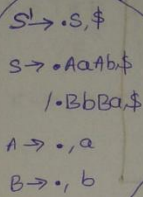 S' → •S, $
S → •AaAb, $
/ •BbBa, $
A → •, a
B → •, b